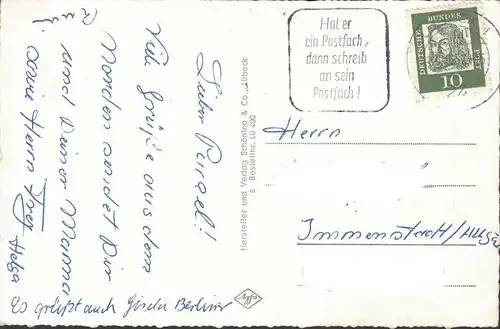 Lieber Pursel!
Viele Grüße aus dem
Norden sendet Dir
und Deiner Mama
sowie Herrn
Helga
Es grüßt auch Gisela Berliner
Hersteller und Verlag Schöning & Co., Lübeck
Bestellnr. Lü 400
Agfa
Hat er
ein Postfach,
dann schreib
an sein
Postfach!
DEUTSCHE BUNDESPOST
10
Herrn
Immenstadt/Allgäu